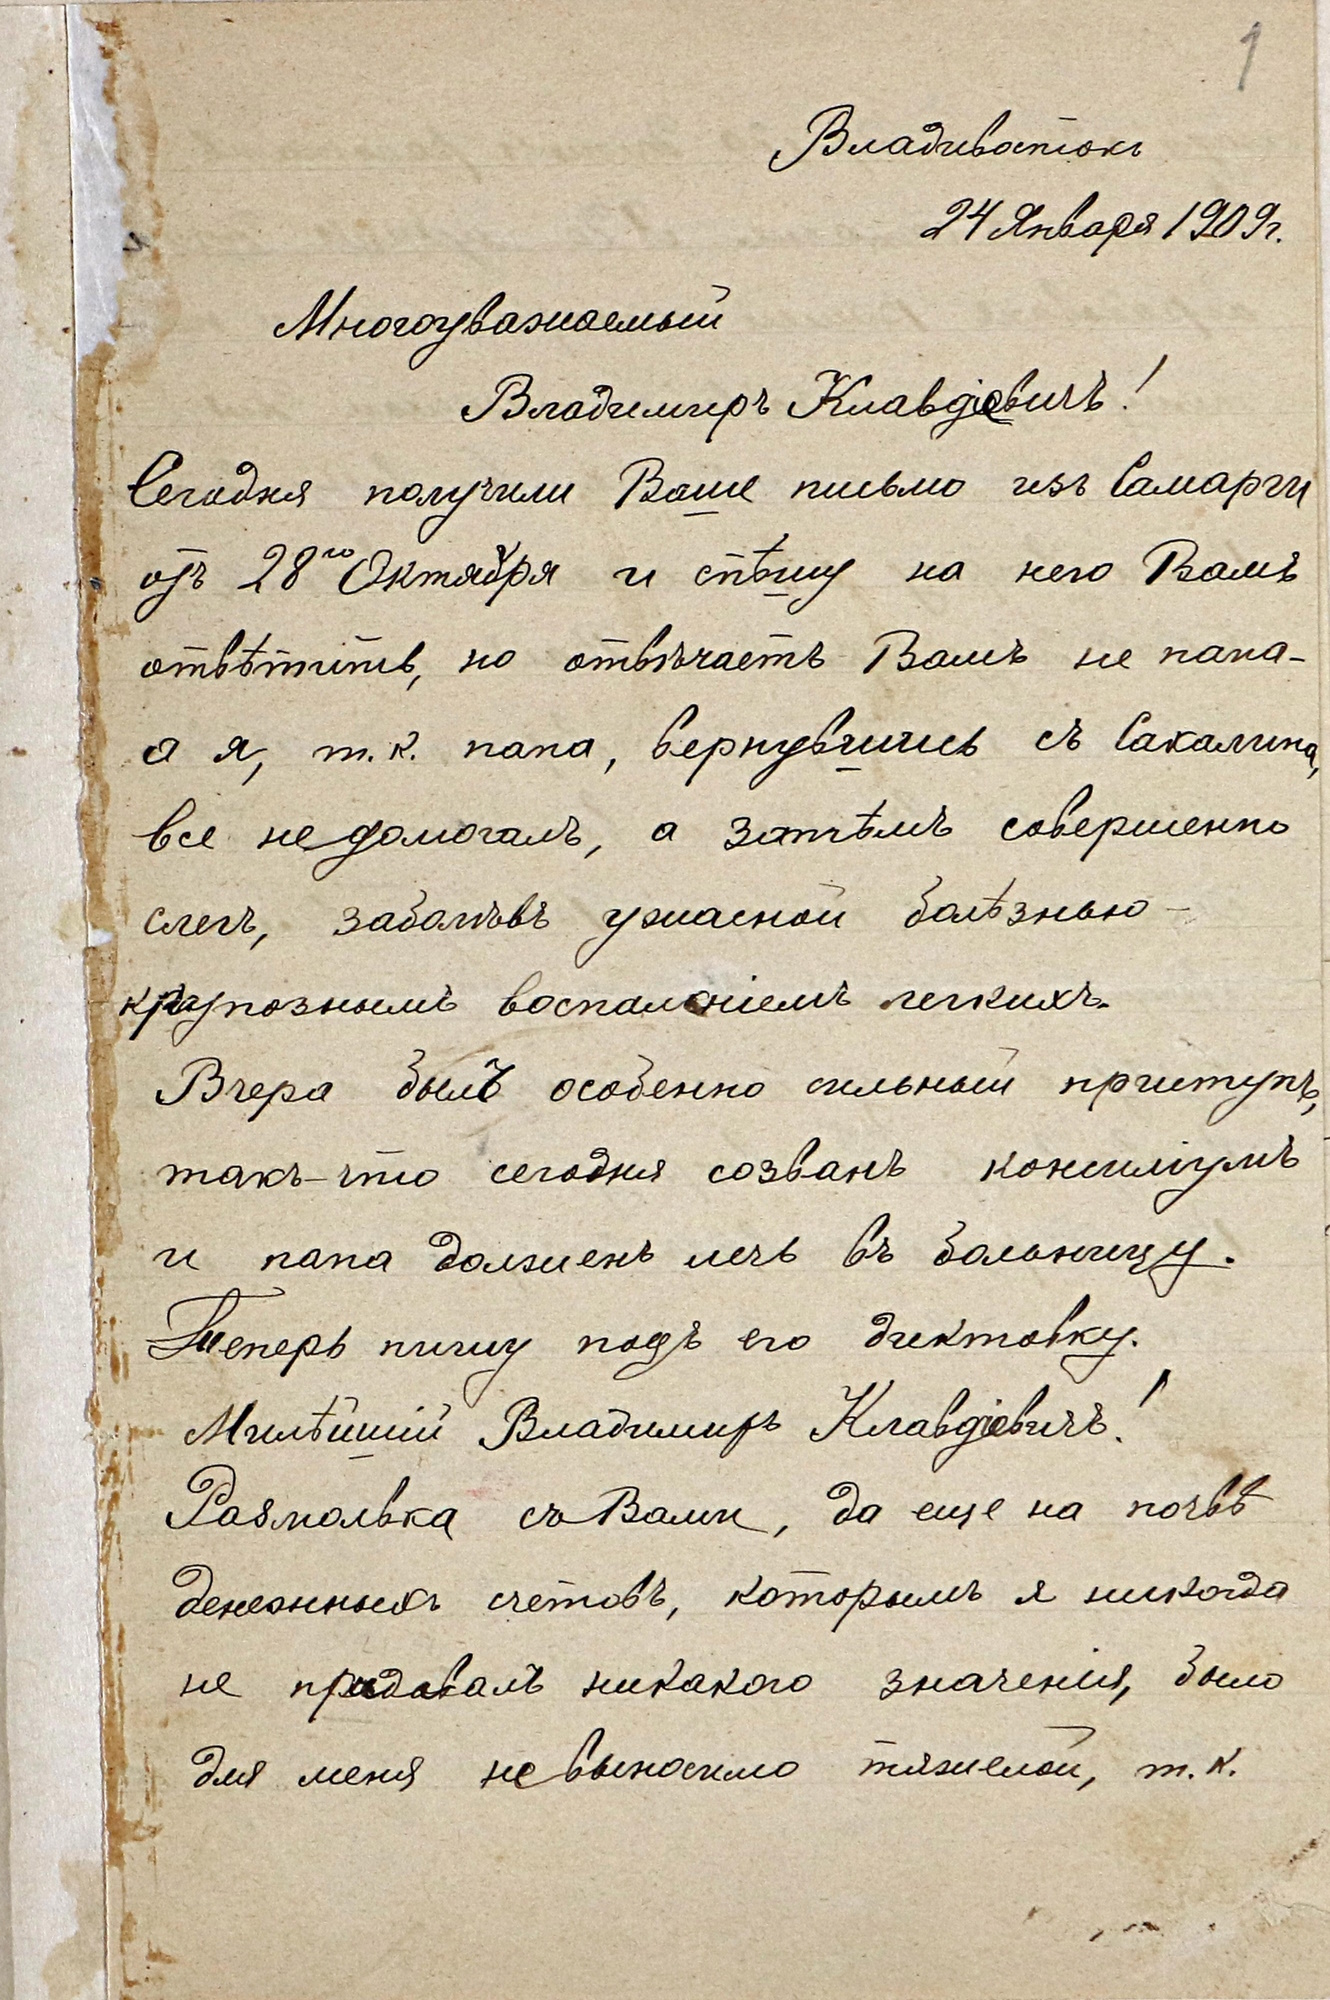 1
Владивостокъ
24 Января 1909 г.
Многоуважаемый
Владимиръ Клавдіевичъ!
Сегодня получили Ваше письмо изъ Самарги
отъ 28го Октября и спѣшу на него Вамъ
отвѣтить, но отвѣчаетъ Вамъ не папа-
а я, т.к. папа, вернувшись съ Сахалина,
все недомогалъ, а затѣмъ совершенно
слегъ, заболѣвъ ужасной болѣзнью –
крупознымъ воспаленіемъ легкихъ.
Вчера былъ особенно сильный приступъ,
такъ-что сегодня созванъ консиліумъ
и папа долженъ лечь въ больницу.
Теперь пишу подъ его диктовку.
Милѣйшій Владимиръ Клавдіевичъ!
Размолвка съ Вами, да еще на почвѣ
денежныхъ счетовъ, которымъ я никогда
не придавалъ никакого значенія, было
для меня невыносимо тяжелой, т.к.